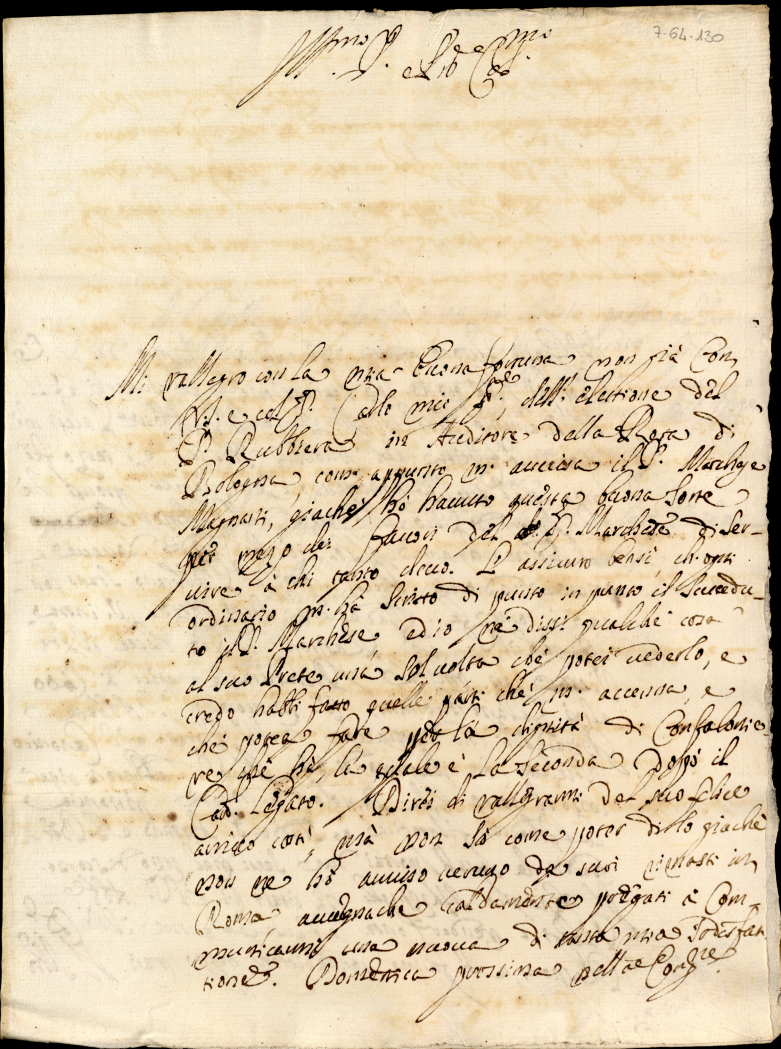 7-64-130
Ill.mo S.
Mi rallegro con la mia buona fortuna non già con
V.S. e col S. mio dell'elettione del
S. Rubbiera in Auditore della Rota di
Bologna, com'appunto m'accusa il S. Marchese
Magnani, giachè hò hauuto questa buona sorte
per mezo dei fauori del S. Marchese di ser-
uire à chi tanto deuo. L'assicuro bensì, ch'ogni
ordinario m'hà scritto di punto in punto il succedu-
to il S. Marchese ed io nè dissi qualche cosa
al suo Prete una sol uolta che potei uederlo, e
credo habbi fatto quelle parti che m'accenna, e
che potea fare per la dignità di Confalonie-
re che hà, la quale è la seconda dopò il
Card. Legato. Direi di rallegrarmi del suo felice
arriuo costì, mà non sò come poter dirlo giachè
non ne hò auuiso ueruno da suoi rimasti in
Roma caldamente pregati à com-
municarmi una nuoua di tanta mia sodisfat-
tione. Domenica prossima nella Cong.ne